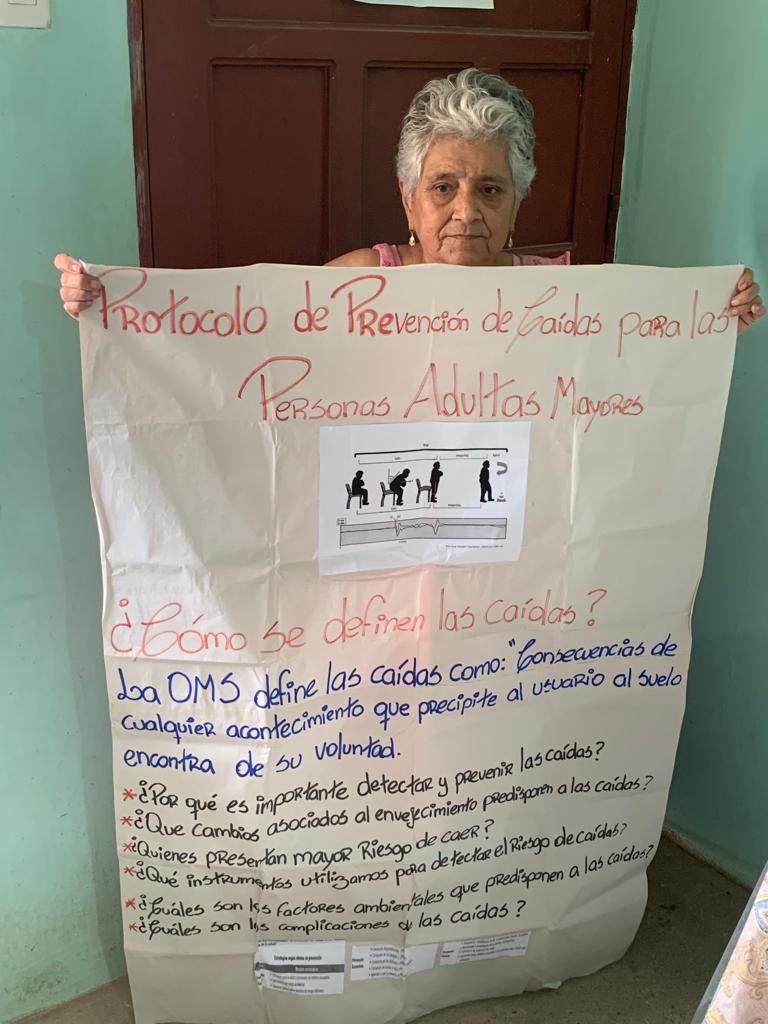 Protocolo de Prevención de Caídas para las
Personas Adultas Mayores
¿Cómo se definen las caídas?
La OMS define las caídas como: "Consecuencias de
cualquier acontecimiento que precipite al usuario al suelo
encontra de su voluntad.
*¿Por qué es importante detectar y prevenir las caídas?
*¿Que cambios asociados al envejecimiento predisponen a las caídas?
*¿Quienes presentan mayor Riesgo de caer?
*¿Qué instrumentos utilizamos para detectar el Riesgo de caídas?
*¿Cuáles son los factores ambientales que predisponen a las caídas?
*¿Cuáles son las complicaciones de las caídas?